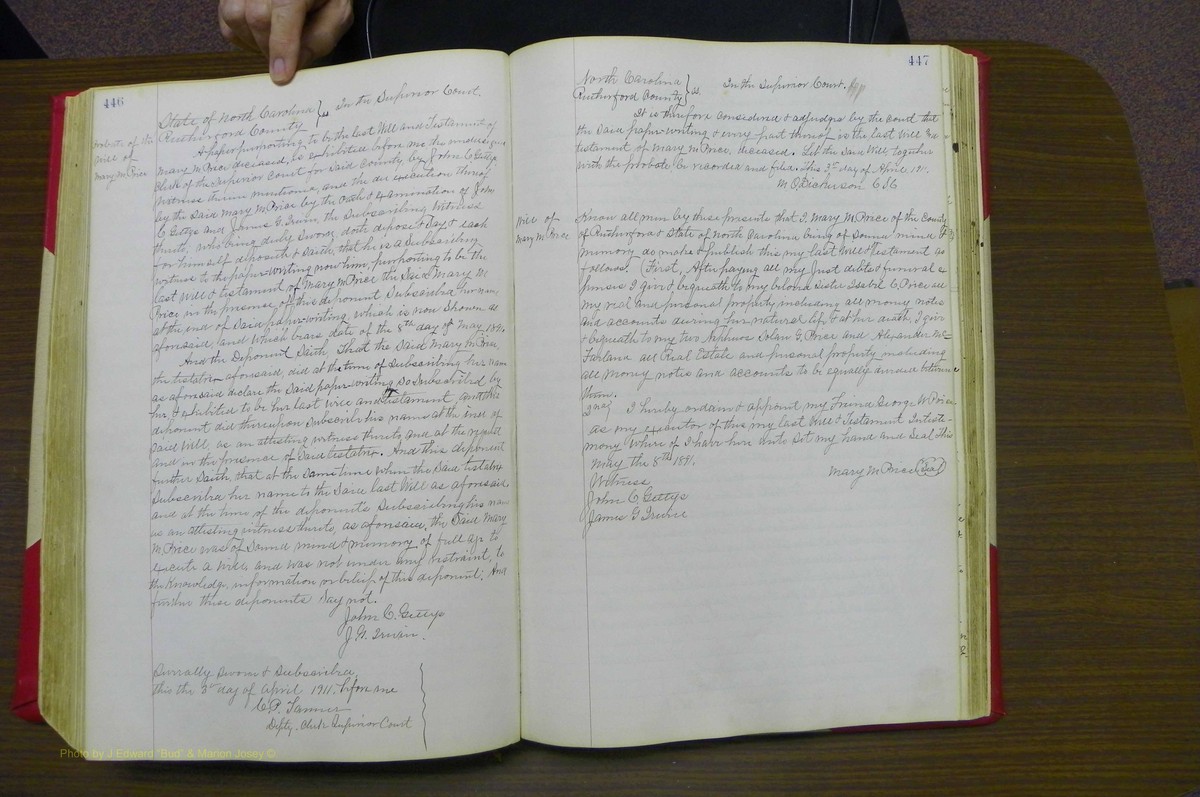 446
State of North Carolina } ss In the Superior Court.
Rutherford County
Probate of the
Will of
Mary M Price
A paper purporting to be the last Will and Testament of
Mary M Price deceased, is exhibited before me the undersigned
Clerk of the Superior Court for said County, by John C Gettys
witness therein mentioned, and the due execution thereof
by the said Mary M Price by the oath & Examination of John
C Gettys and James G Irvin, the Subscribing Witness
thereto, who being duly sworn, doth depose & say & each
for himself deposeth & saith, that he is a Subscribing
witness to the paper-writing now shown him, purporting to be the
last Will & testament of Mary M Price the said Mary M
Price in the presence of this deponent Subscribed her name,
at the end of said paper-writing, which is now shown as
aforesaid, and which bears date of the 8th day of May 1891.
And the Deponent Saith, That the said Mary M Price
the testator aforesaid, did at the time of subscribing her name
as aforesaid declare the said paper-writing so subscribed by
her, & exhibited to be her last will and testament, and this
deponent did thereupon subscribe his name at the end of
said Will, as an attesting witness thereto, and at the request
and in the presence of said testator. And this deponent
further saith, that at the same time when the said testator
subscribed her name to the said last Will as aforesaid
and at the time of the deponent's subscribing his name
as an attesting witness thereto, as aforesaid, the said Mary
M Price was of sound mind & memory, of full age to
execute a will, and was not under any restraint, to
the knowledge, information or belief of this deponent: And
further these deponents say not.
John C. Gettys
J. G. Irvin.
Severally Sworn & Subscribed
this the 3rd day of April 1911. before me
C.P. Tanner
Depty. Clerk Superior Court
447
North Carolina } ss. In the Superior Court.
Rutherford County
It is therefore considered & adjudged by the court that
the said paper-writing & every part thereof is the last will and
testament of Mary M Price, deceased. Let the said Will together
with the probate be recorded and filed. This 3rd day of April, 1911.
M. O. Dickerson C S C
Will of
Mary M. Price
Know all men by these presents that I, Mary M Price of the County
of Rutherford & State of North Carolina being of Sound mind &
memory do make & publish this my last Will & Testament as
follows. (First, After paying all my Just debts & funeral ex
penses I give & bequeath to my beloved Sister Isabel C Price all
my real and personal property including all money notes
and accounts during her natural life & at her death, I give
& bequeath to my two Nephews Solan G Price and Alexander Mc
Farland all Real Estate and personal property including
all money notes and accounts to be equally divided between
them.
2nd I hereby ordain & appoint my Friend George W Price
as my executor of this my last Will & Testament In testi
mony where of I have here unto set my hand and seal this
May the 8th 1891.
Mary M Price (Seal)
Witness
John C Gettys
James G Irvine
Photo by J Edward "Bud" & Marion Josey ©